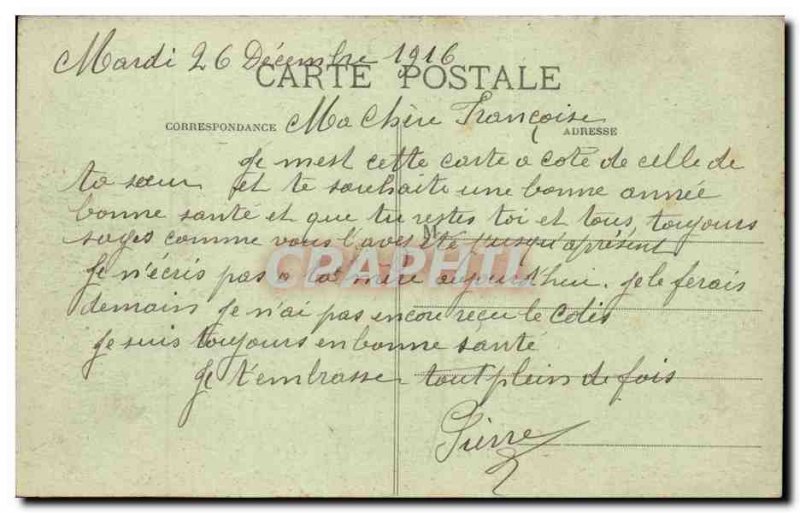 Mardi 26 Décembre 1916
CARTE POSTALE
CORRESPONDANCE
Ma Chère Françoise
ADRESSE
Je mest cette carte a coté de celle de
ta sœur et te souhaite une bonne année
bonne santé et que tu restes toi et tous, toujours
sages comme vous l'aves été jusqu'aprésent
M
CRAPHIL
Je n'écris pas a ta mère aujourd'hui. je le ferais
demain je n'ai pas encou reçu le Colis
je suis toujours en bonne santé
Je t'embrasse tout plein de fois
Pierre